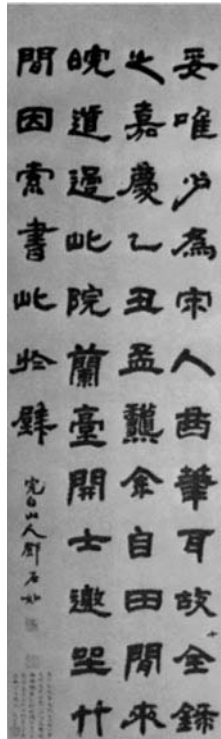 妥唯少為宋人酋筆耳故全錄
之嘉慶乙丑孟龝余自田間來
皖道過此院蘭臺開士邀坐竹
間因索書此於壁
完白山人鄧石如